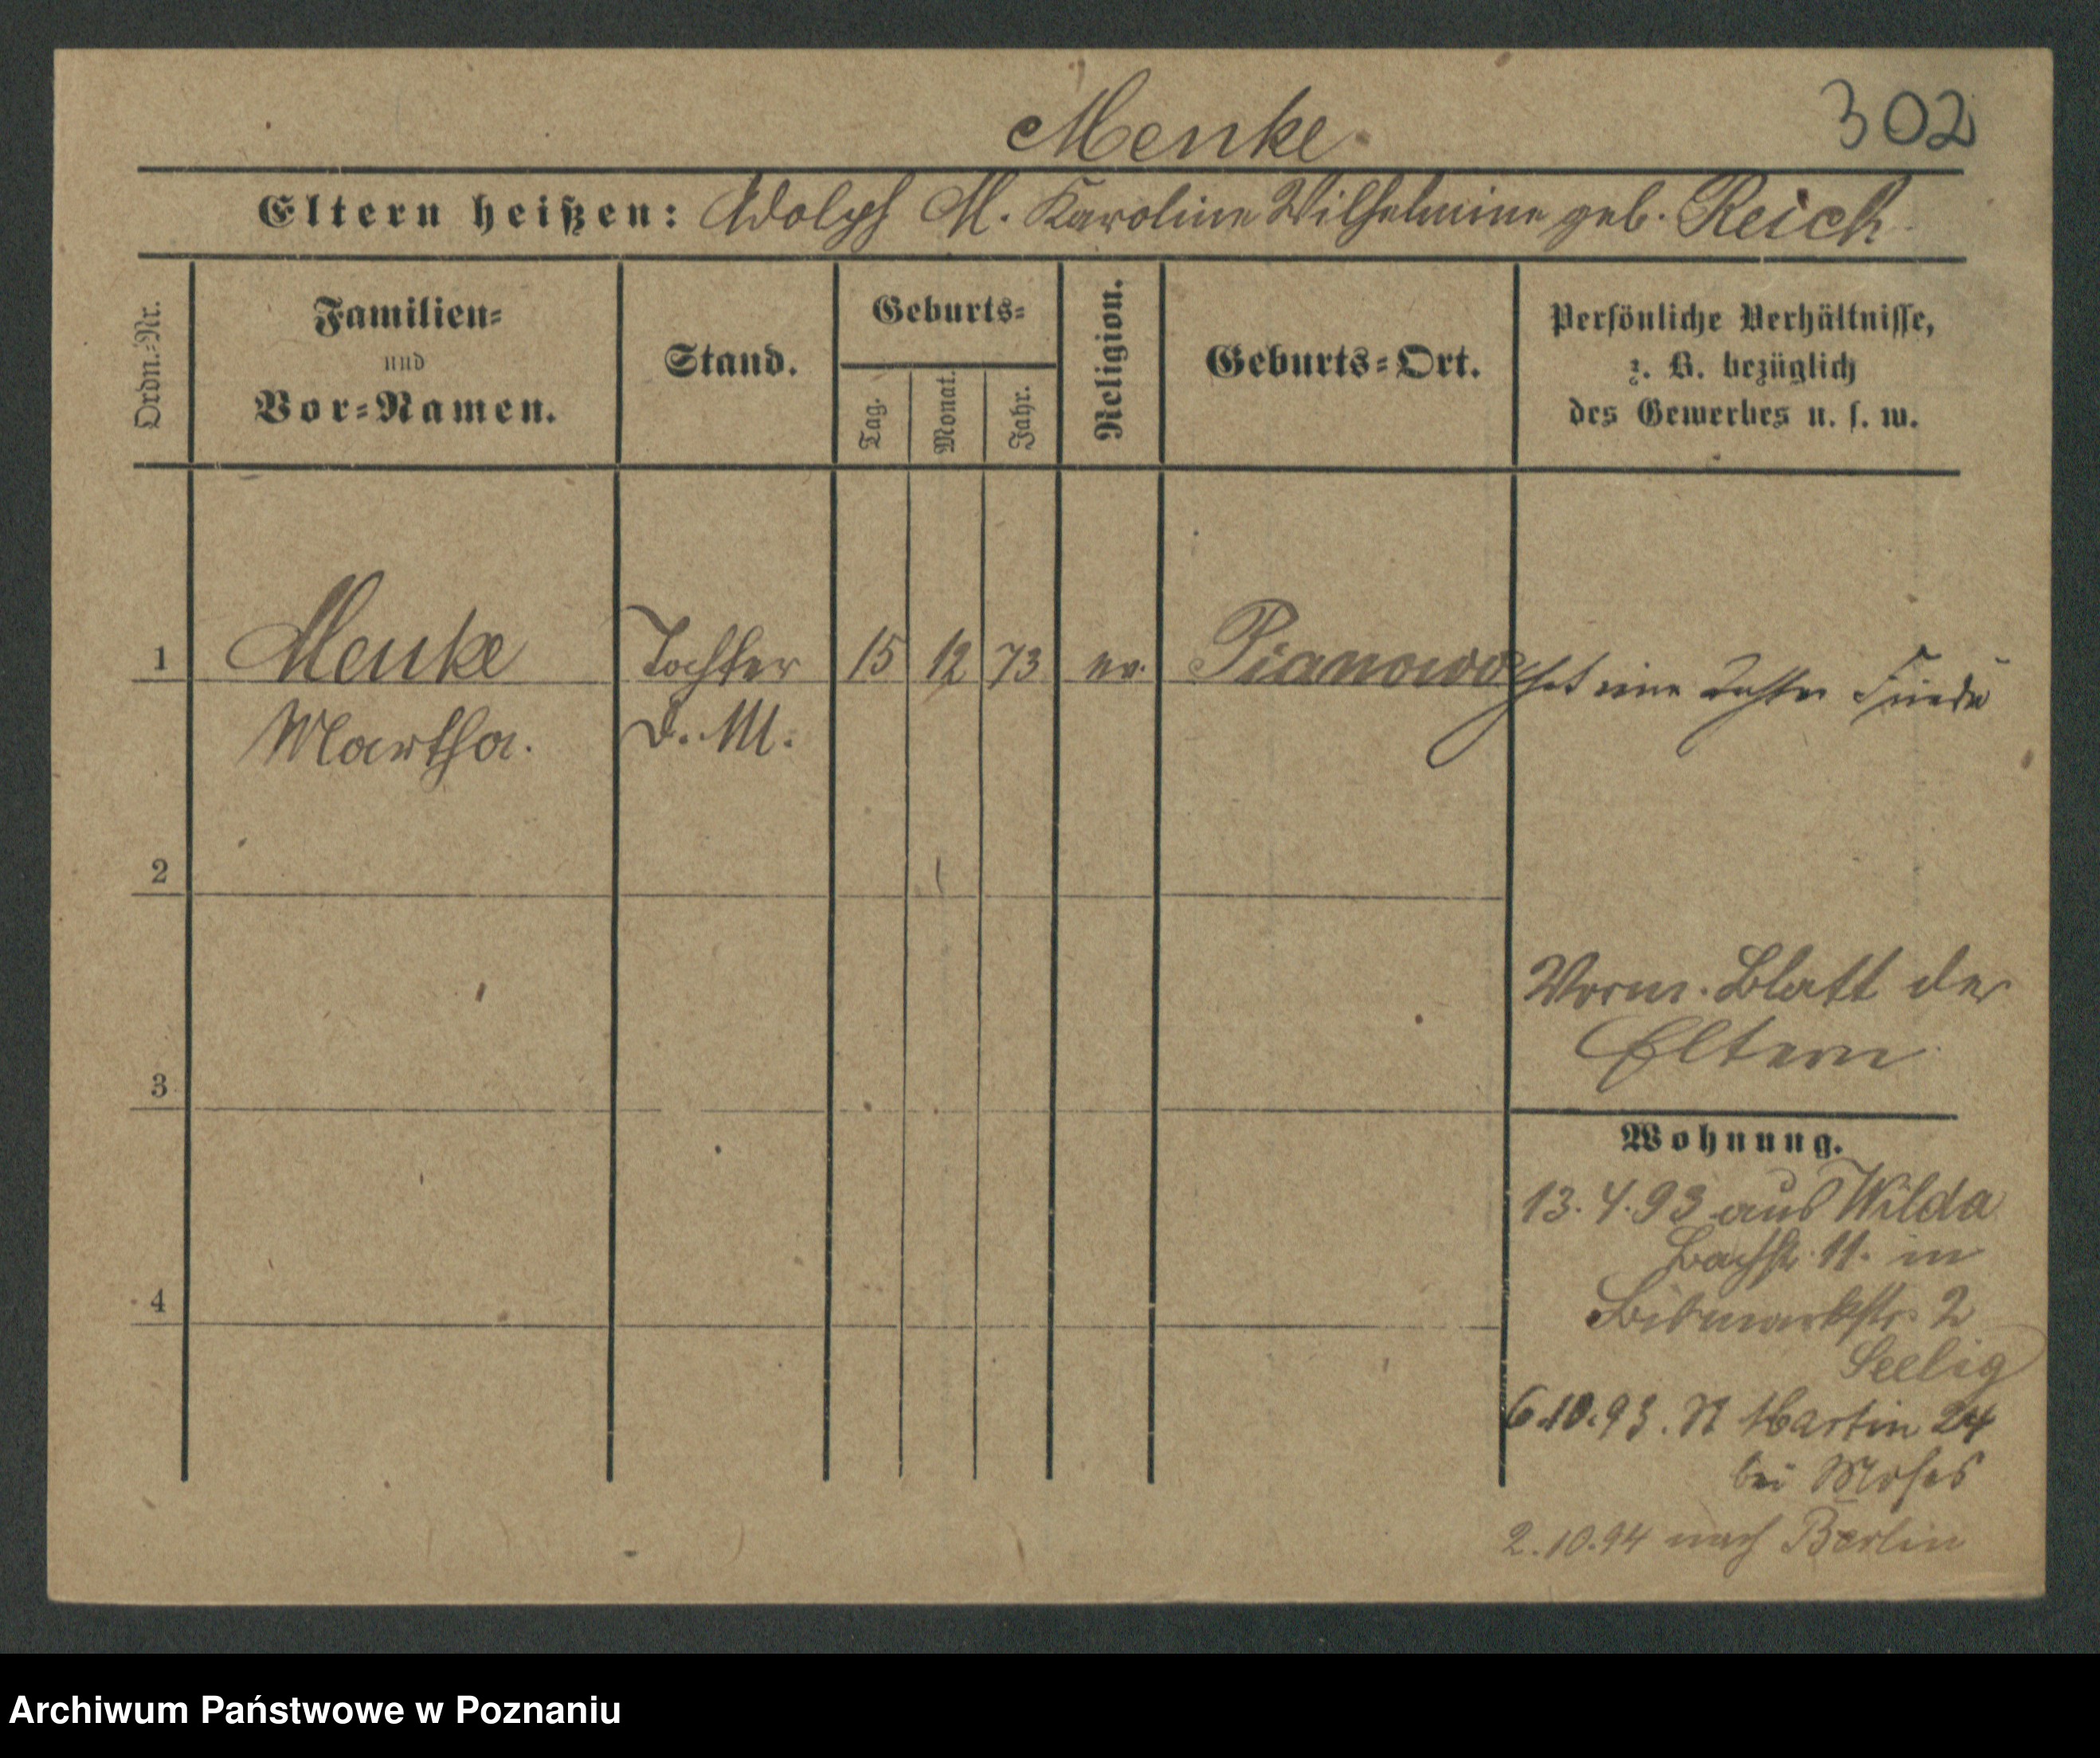 Menke
302
Eltern heißen: Adolph M. Karoline Wilhelmine geb. Reich.
Ordn.-Nr.
Familien-
und
Vor-Namen.
Stand.
Geburts-
Tag.
Monat.
Jahr.
Religion.
Geburts-Ort.
Persönliche Verhältnisse,
z. B. bezüglich
des Gewerbes u. s. w.
1 Menke Tochter 15 12 73 ev. Pianowo hat eine Tochter
Martha. d. M.
2
Vorm. Blatt der
Eltern
3
Wohnung.
13.4.93 aus Wilda
Bachstr. 11. in
4
Bismarkstr. 2
Seelig
6.10.93. St Martin 24
bei Moses
2.10.94 nach Berlin
Archiwum Państwowe w Poznaniu